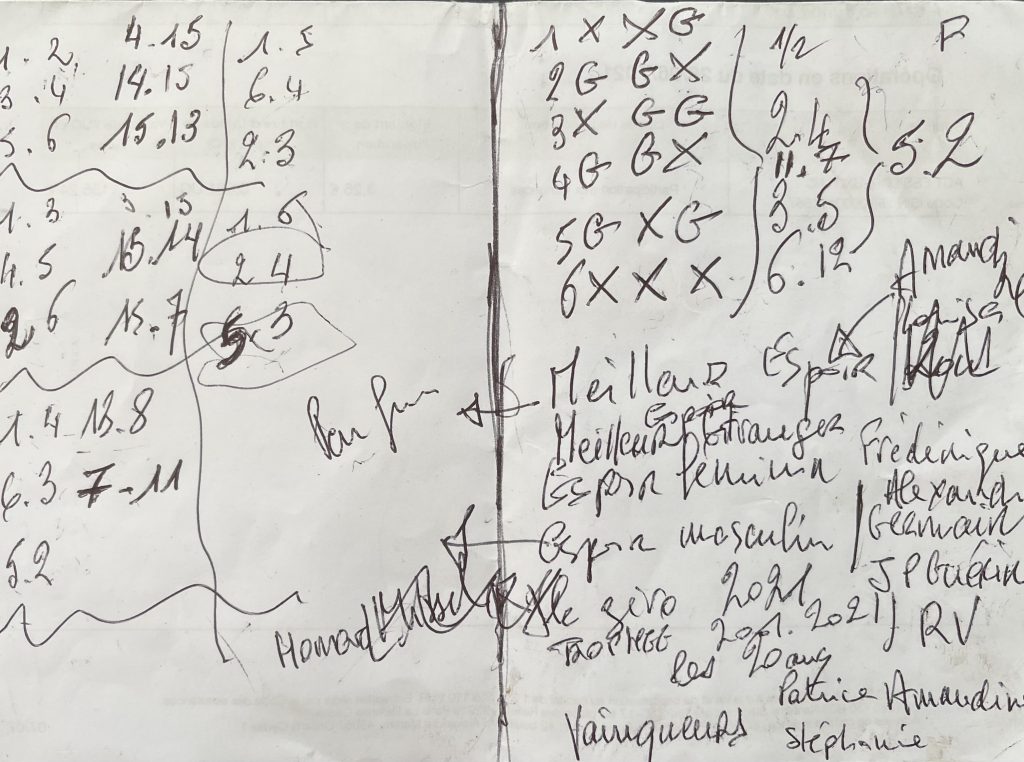 1. 2. 4.15
3.4 14.15
5.6 15.13
1.3 3.15
4.5 15.14
2.6 15.7
1.4 13.8
6.3 7-11
5.2
1.5
6.4
2.3
1.6
2 4
5x3
1 X X G
2 G G X
3 X G G
4 G G X
5 G X G
6 X X X
1/2
2.4
11.7
3.5
6.12
5.2
Amandi
Louise
Meilleur Espoir
Espoir
Meilleur Etranger
Espoir feminin Frédérique
Alexandr
Espoir masculin Germain
JP Guérin
le giro 2021
TROPHEE 2001.2021 RV
les 20 ans
Patrice Amaudin
Vainqueurs Stéphanie